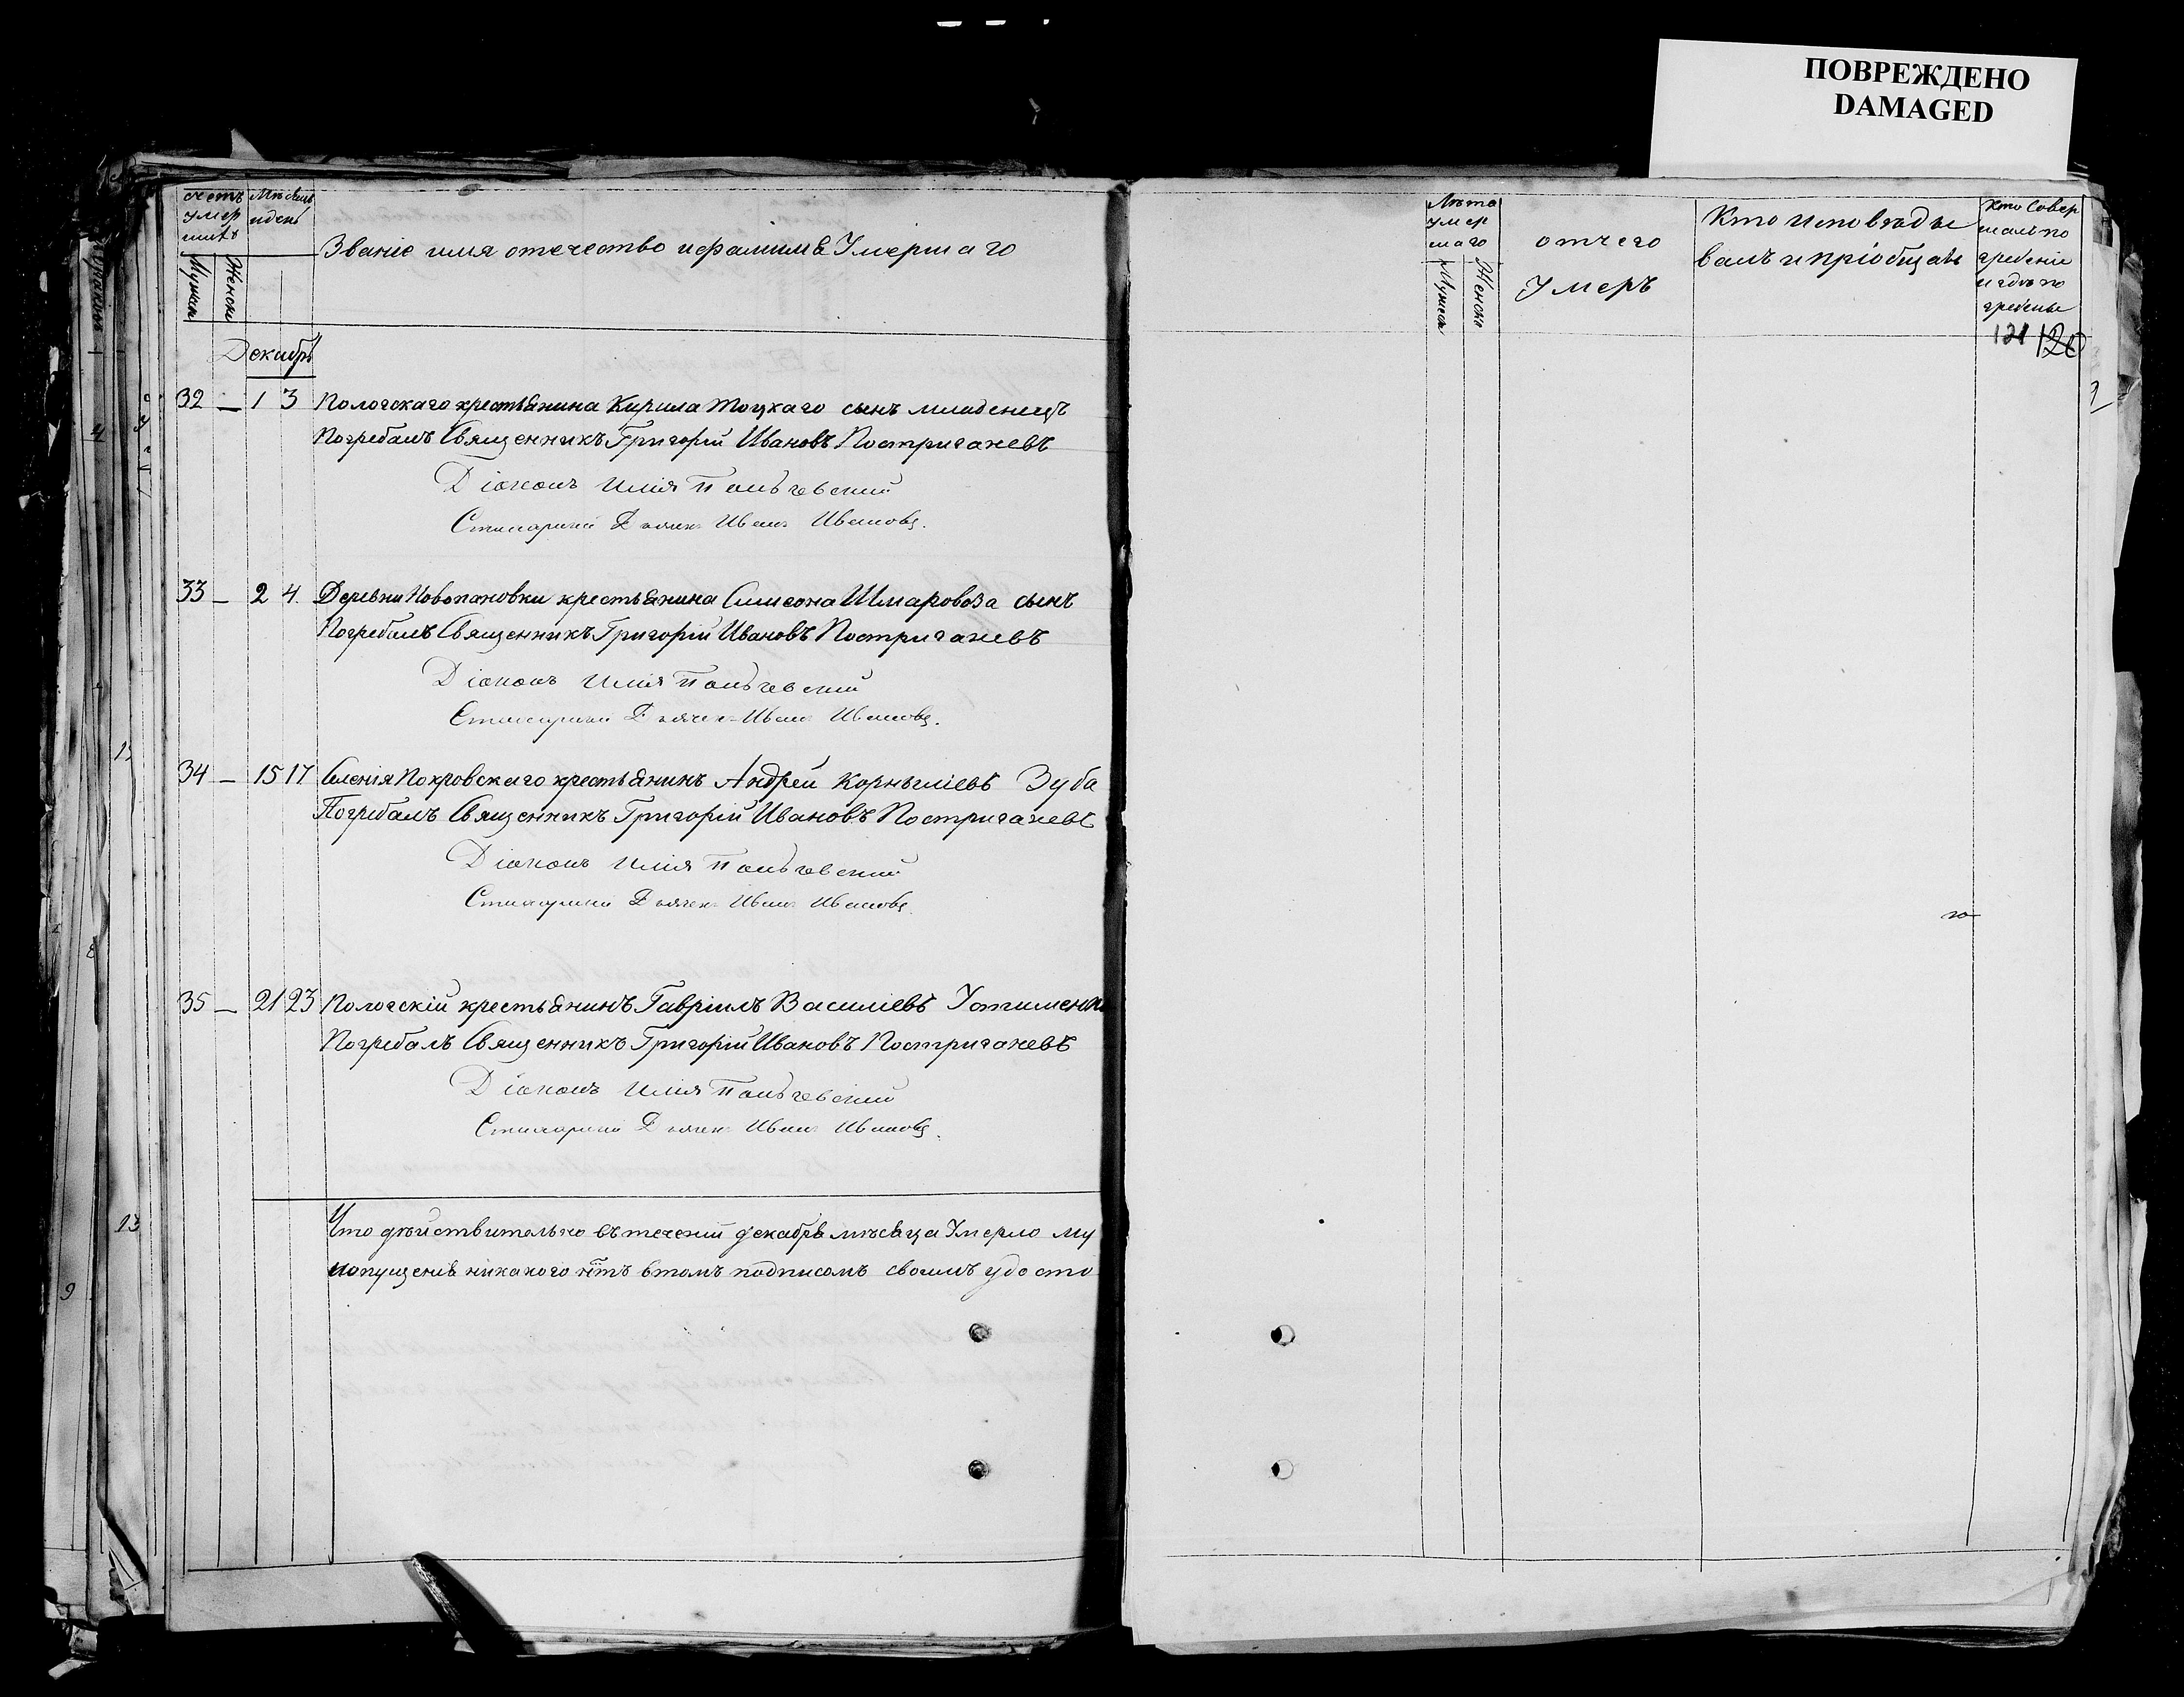 ПОВРЕЖДЕНО
DAMAGED
счетъ
умер
шихъ
Мужск
Женск
Мѣсяцъ
идень
Званіе имя отечество ифамиля Умершаго
Лѣта
умер
шаго
Мужеск
Женск
отчего
Умеръ
Кто исповѣды
валъ и пріобщалъ
Кто совер
шалъ по
гребеніе
и гдѣ по
гребены
121 120
Декабрь
32 — 1 3 Пологскаго крестьянина Кирила Тоцкаго сынъ младенецъ
Погребалъ Священникъ Григорій Ивановъ Постригачевъ
Діаконъ Илія
Дьячекъ Иванъ Ивановъ.
33 — 2 4 Деревни Новопановки крестьянина Симеона Шмаровоза сынъ
Погребалъ Священникъ Григорій Ивановъ Постригачевъ
Діаконъ Илія
Дьячекъ Иванъ Ивановъ.
34 — 15 17 Селенія Покровскаго крестьянинъ Андрей Корнѣліевъ Зуба
Погребалъ Священникъ Григорій Ивановъ Постригачевъ
Діаконъ Илія
Дьячекъ Иванъ Ивановъ.
35 — 21 23 Пологскій крестьянинъ Гавріилъ Василіевъ
Погребалъ Священникъ Григорій Ивановъ Постригачевъ
Діаконъ Илія
Дьячекъ Иванъ Ивановъ.
Что дѣйствительно въ теченіи декабря мѣсяца Умерло му
и опущенія никакого нѣтъ втомъ подписомъ своимъ удосто